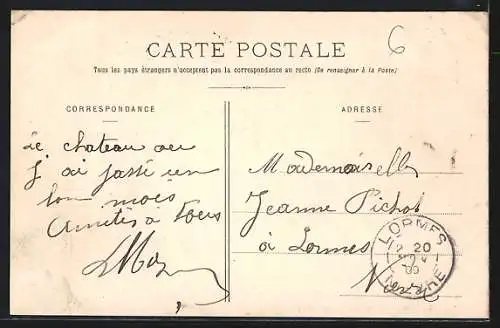 CARTE POSTALE
6
Tous les pays étrangers n'acceptent pas la correspondance au recto (Se renseigner à la Poste)
CORRESPONDANCE
Le chateau ou
j'ai passé un
bon mois
Amitiés à tous
ADRESSE
Mademoiselle
Jeanne Pichot
à Lormes
Nièvre
LORMES
20